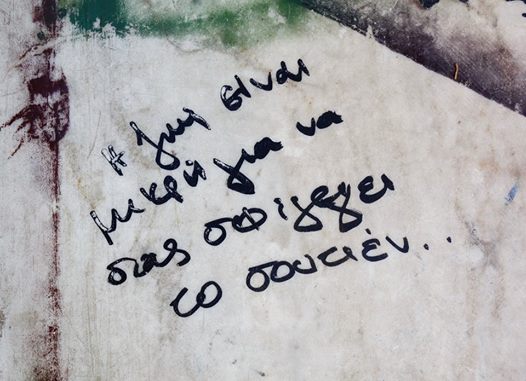 Η ζωή είναι
μικρή για να
σας σφίγγει
το σουτιέν..